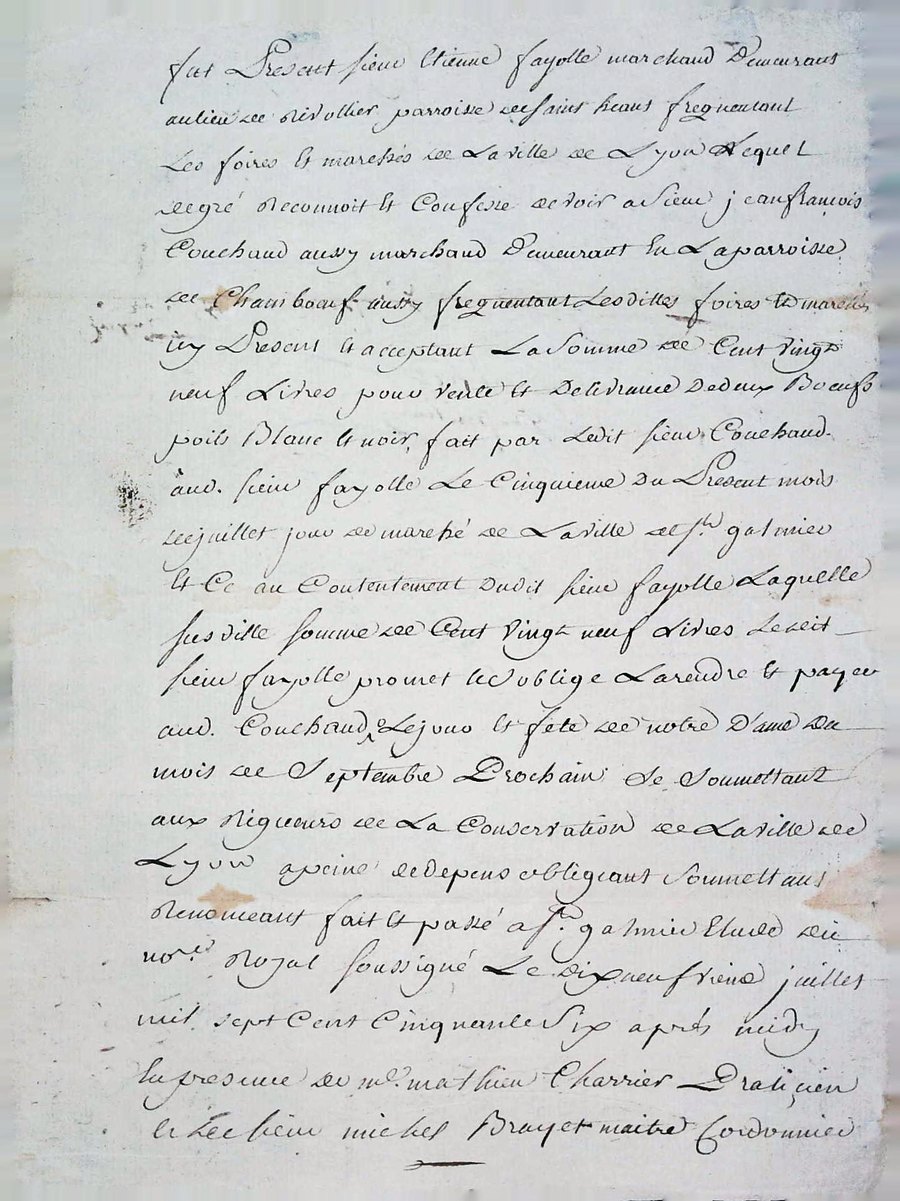 fut Present sieur Etienne fayolle marchand Demeurant
au lieu de Rivollier parroisse de saint heant frequentant
Les foires et marchés de La ville de Lyon Lequel
de gré Reconnoit et Confesse devoir a sieur jean françois
Couchaud aussy marchand Demeurant En La parroisse
de Chambœuf aussy frequentant Lesdittes foires et marchés
icy Present et acceptant La Somme de Cent vingt
neuf Livres pour vente et Delivrance De deux Bœufs
poils Blanc et noir, fait par Ledit sieur Couchaud
aud. sieur fayolle Le Cinquieme Du Present mois
de juillet jour de marché de La ville de St. galmier
Et Ce au Contentement Dudit sieur fayolle Laquelle
susditte somme de Cent vingt neuf Livres Ledit
sieur fayolle promet et s'oblige La rendre et payer
aud. Couchaud Le jour et fete de notre Dame du
mois de Septembre Prochain Se Soumettant
aux Rigueurs de La Conservation de La ville de
Lyon a peine de depens obligeant Soumettant
Renonceant fait et passé a St. galmier Etude du
nore. Royal soussigné Le Dix neufvieme juillet
mil sept Cent Cinquante Six après midy
En presence de me. mathieu Charrier Praticien
et de sieur michel Brayet maitre Cordonnier